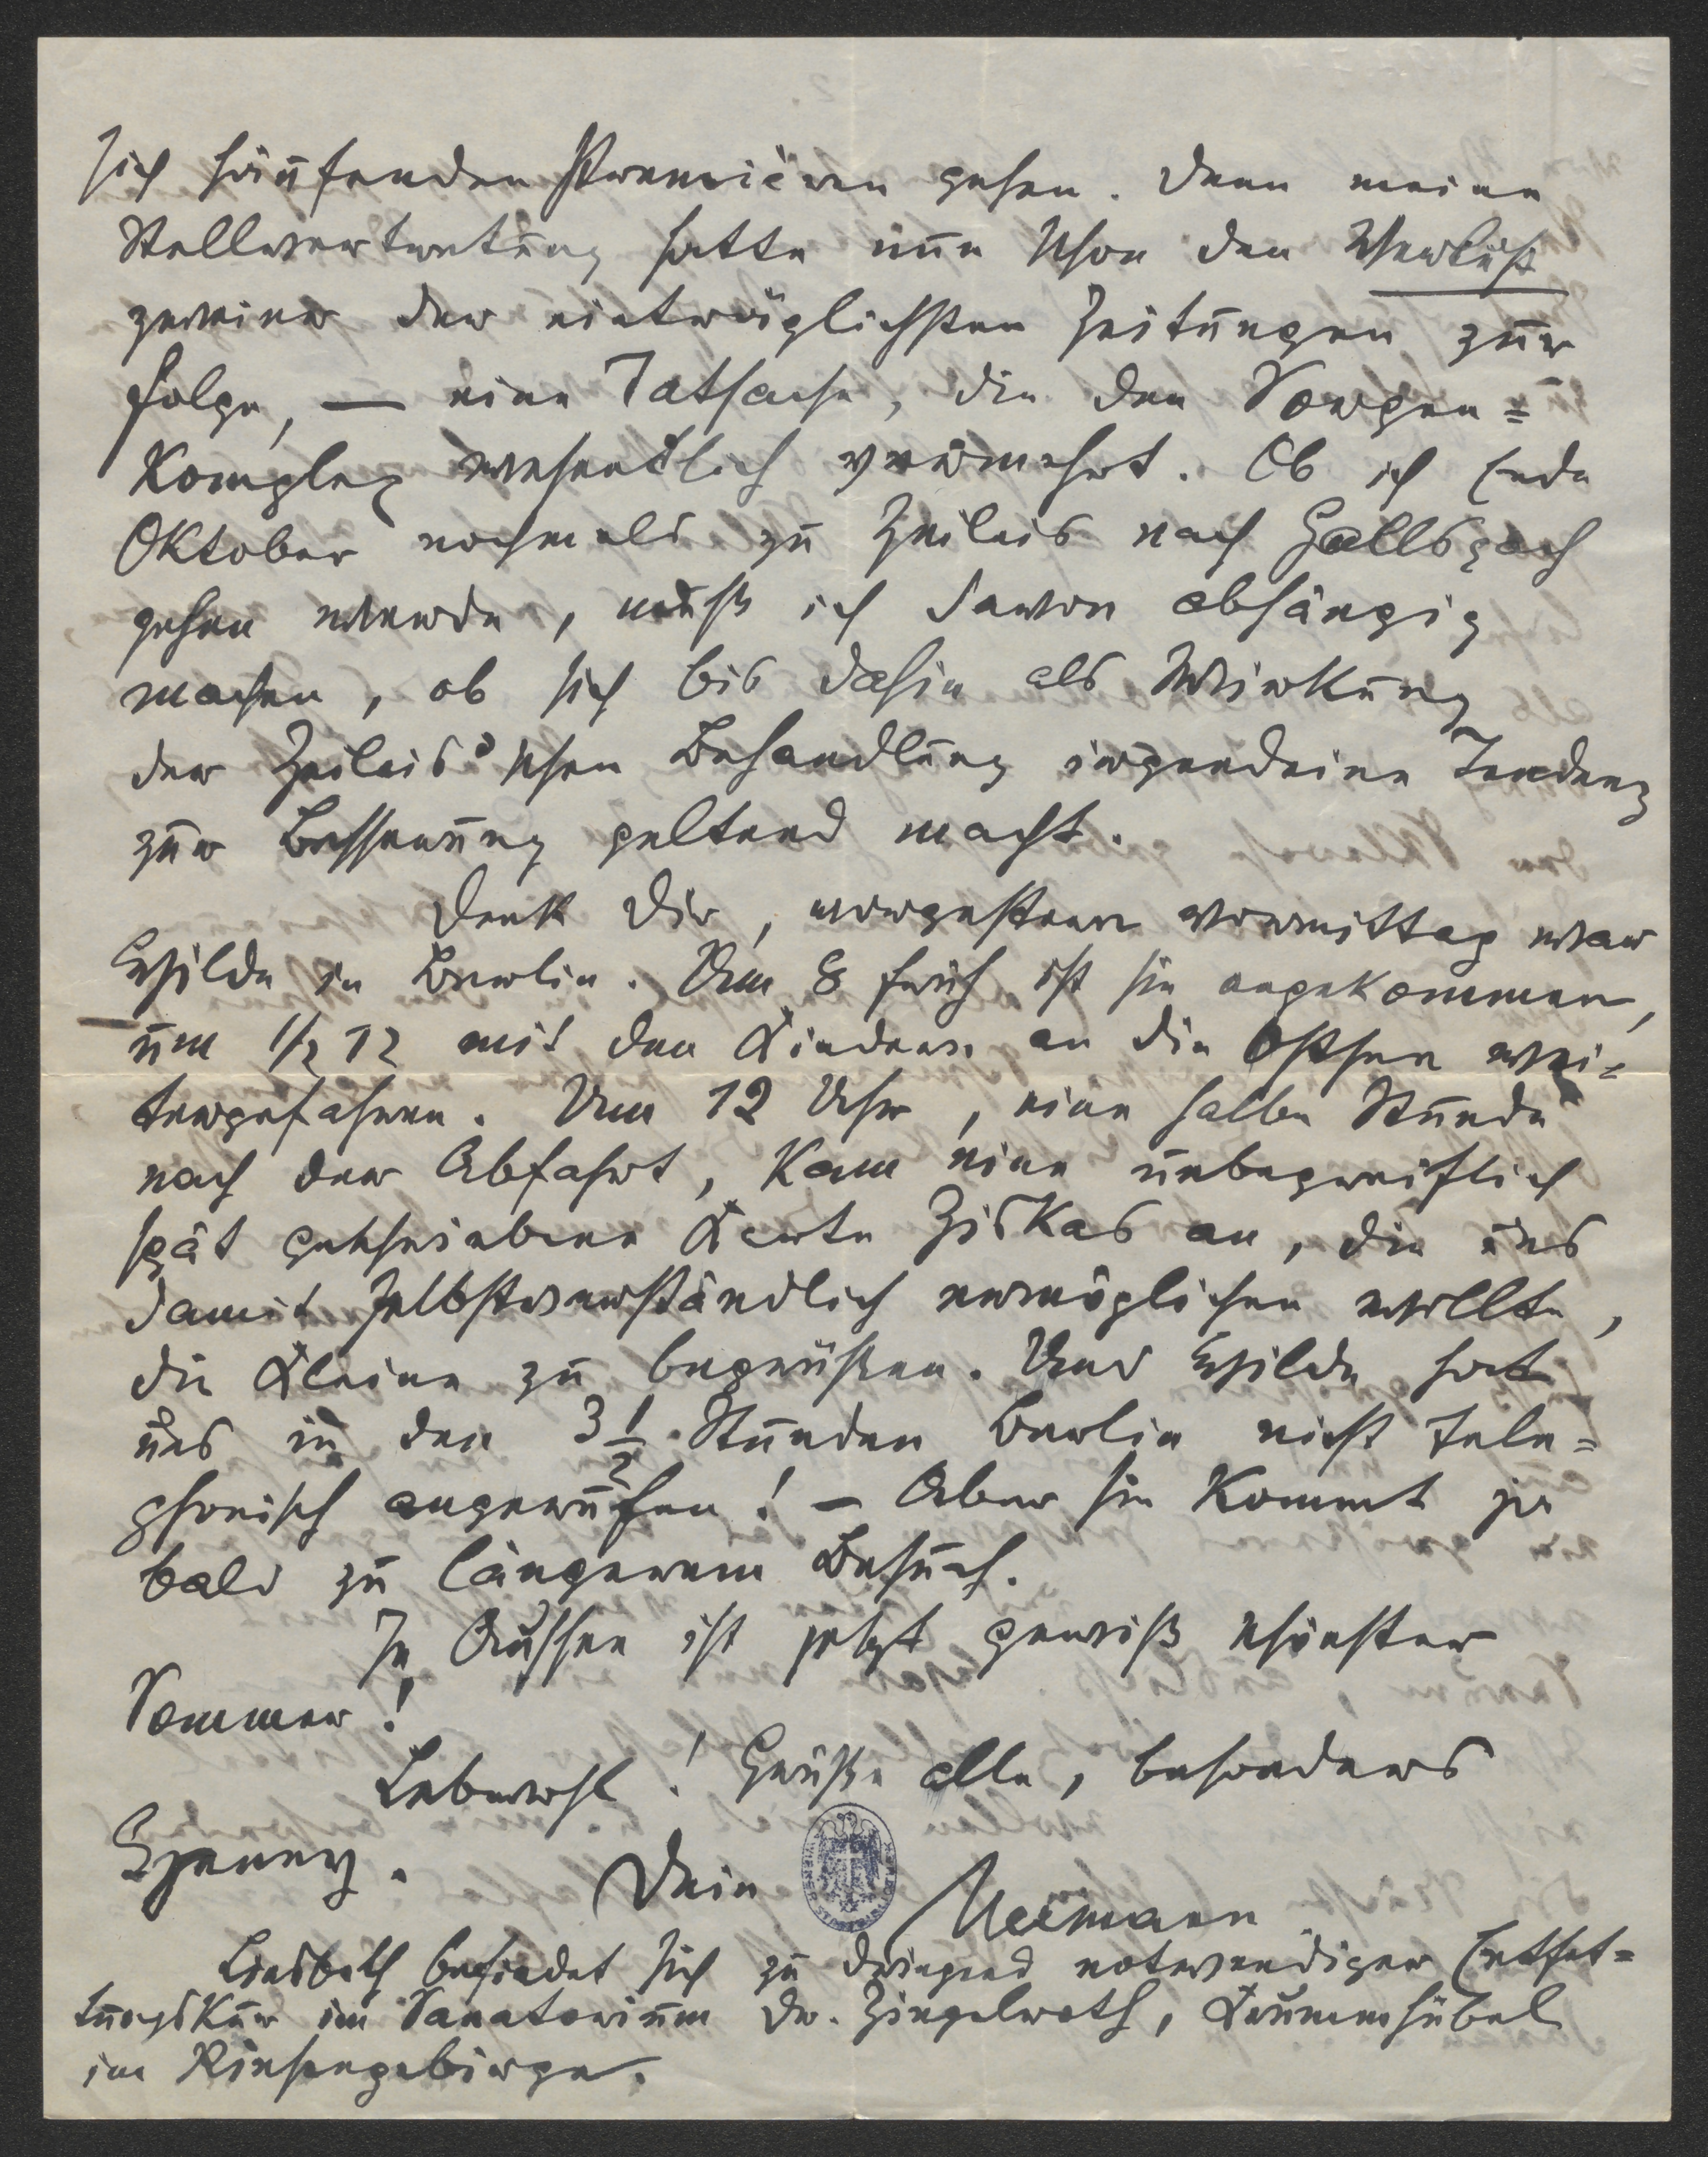 sich häufenden Premièren gehen. Denn meine
Stellvertretung hatte nun schon den Verlust
zweier der einträglichsten Zeitungen zur
Folge, — eine Tatsache, die den Sorgen=
Komplex wesentlich vermehrt. Ob ich Ende
Oktober nochmals zu Zeileis nach Gallspach
gehen werde, muß ich davon abhängig
machen, ob sich bis dahin als Wirkung
der Zeileis'schen Behandlung irgendeine Tendenz
zur Besserung geltend macht.
Denk Dir, vorgestern vormittag war
Hilde in Berlin. Um 8 früh ist sie angekommen,
um 1/2 12 mit den Kindern an die Ostsee wei=
tergefahren. Um 12 Uhr, eine halbe Stunde
nach der Abfahrt, kam eine unbegreiflich
spät geschriebene Karte Ziskas an, die uns
damit selbstverständlich ermöglichen wollte,
die Kleine zu begrüßen. Und Hilde hat
uns in den 3 1/2 Stunden Berlin nicht tele=
phonisch angerufen! — Aber sie kommt ja
bald zu längerem Besuch.
In Aussee ist jetzt gewiß schönster
Sommer!
Lebewohl! Grüße alle, besonders
Dein
Neümann
Liesbeth befindet sich zu dringend notwendiger Entfet=
tungskur im Sanatorium Dr. Ziegelroth, Krummhübel
im Riesengebirge.